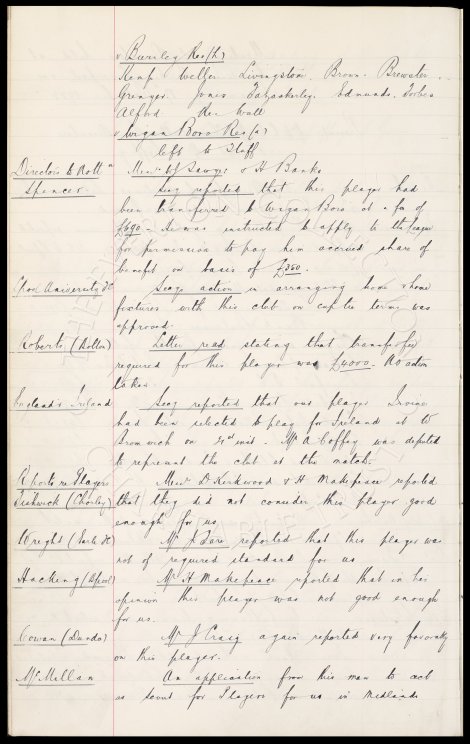 v Burnley Res (h)
Kemp Weller Livingston. Brown. Brewster.
Grenyer. Jones. Fazackerley. Edmunds. Forbes
Alford Wall
v Wigan Boro Res (a)
left to Staff
Directors to Mess.rs W Sawyer & H Banks
Spencer Secy reported that this player had
been transferred to Wigan Boro at a fee of
£690 - He was instructed to apply to the League
for permission to pay him accrued share of
benefit on basis of £350.
University FC Secys action in arranging home & home
fixtures with this club on cup tie terms was
approved.
Roberts (Bolton) Letter read stating that transfer fee
required for this player was £4000. No action
taken
England v Ireland Secy reported that our player Irvine
had been selected to play for Ireland at W
Bromwich on inst. Mr A Coffey was deputed
to represent the club at the match.
Reports re Players Mess.rs D Kirkwood & H Makepeace reported
Fishwick (Chorley) that they did not consider this player good
enough for us
Wright (Earle FC) Mr J reported that this player was
not of required standard for us
Hacking Mr H Makepeace reported that in his
opinion this player was not good enough
for us.
Cowan (Dundee) Mr J Craig again reported very favorably
on this player.
McMillan An application from this man to act
as scout for Players for us in Midlands